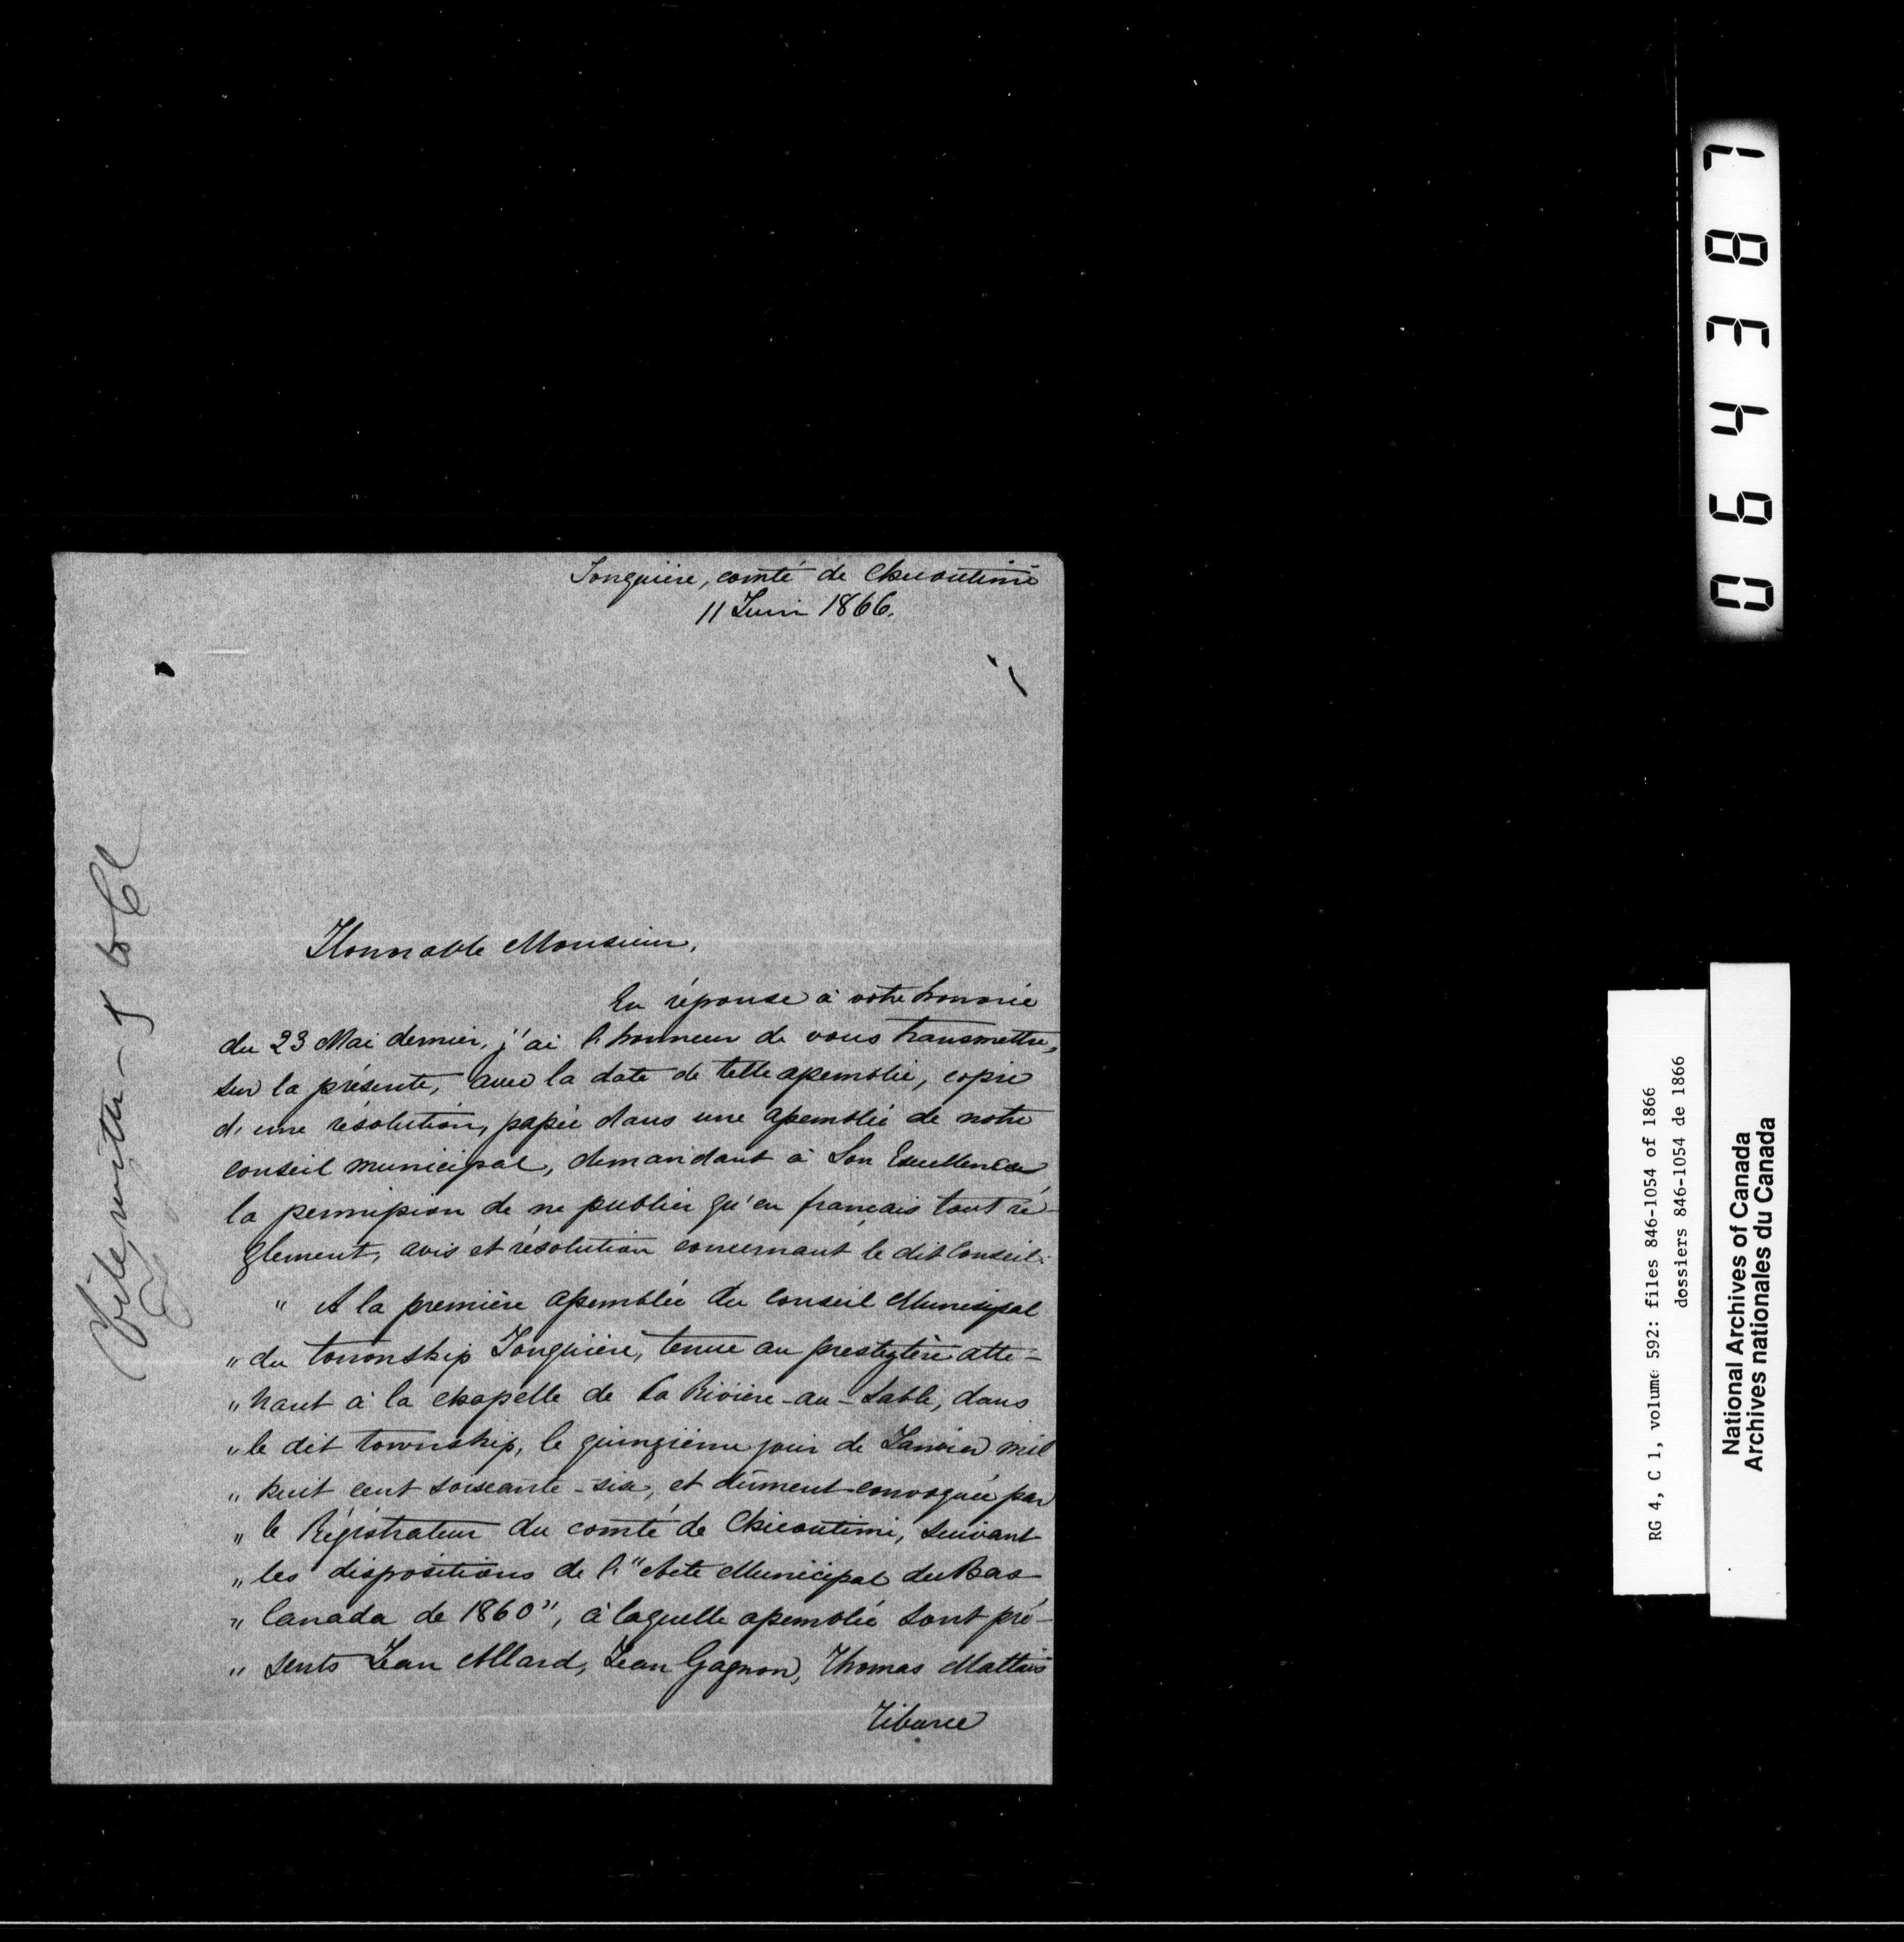 Jonquière, comté de Chicoutimi
11 Juin 1866.
Honorable Monsieur,
En réponse à votre honorée
du 23 Mai dernier, j'ai l'honneur de vous transmettre,
sur la présente, avec la date de telle assemblée, copie
d'une résolution, passée dans une assemblée de notre
conseil municipal, demandant à Son Excellence
la permission de ne publier qu'en français tout ré-
glement, avis et résolution concernant le dit Conseil:
" A la première assemblée du Conseil Municipal
" du township Jonquière, tenue au presbytère atte-
" nant à la chapelle de La Rivière-au-Sable, dans
" le dit township, le quinzième jour de Janvier mil
" huit cent soixante-six, et dûment convoquée par
" le Régistrateur du comté de Chicoutimi, suivant
" les dispositions de l'"Acte Municipal du Bas
" Canada de 1860", à laquelle assemblée sont pré-
" sents Jean Allard, Jean Gagnon, Thomas Mattais
Tiburce
File, with
064387
RG 4, C 1, volume 592: files 846-1054 of 1866
dossiers 846-1054 de 1866
National Archives of Canada
Archives nationales du Canada